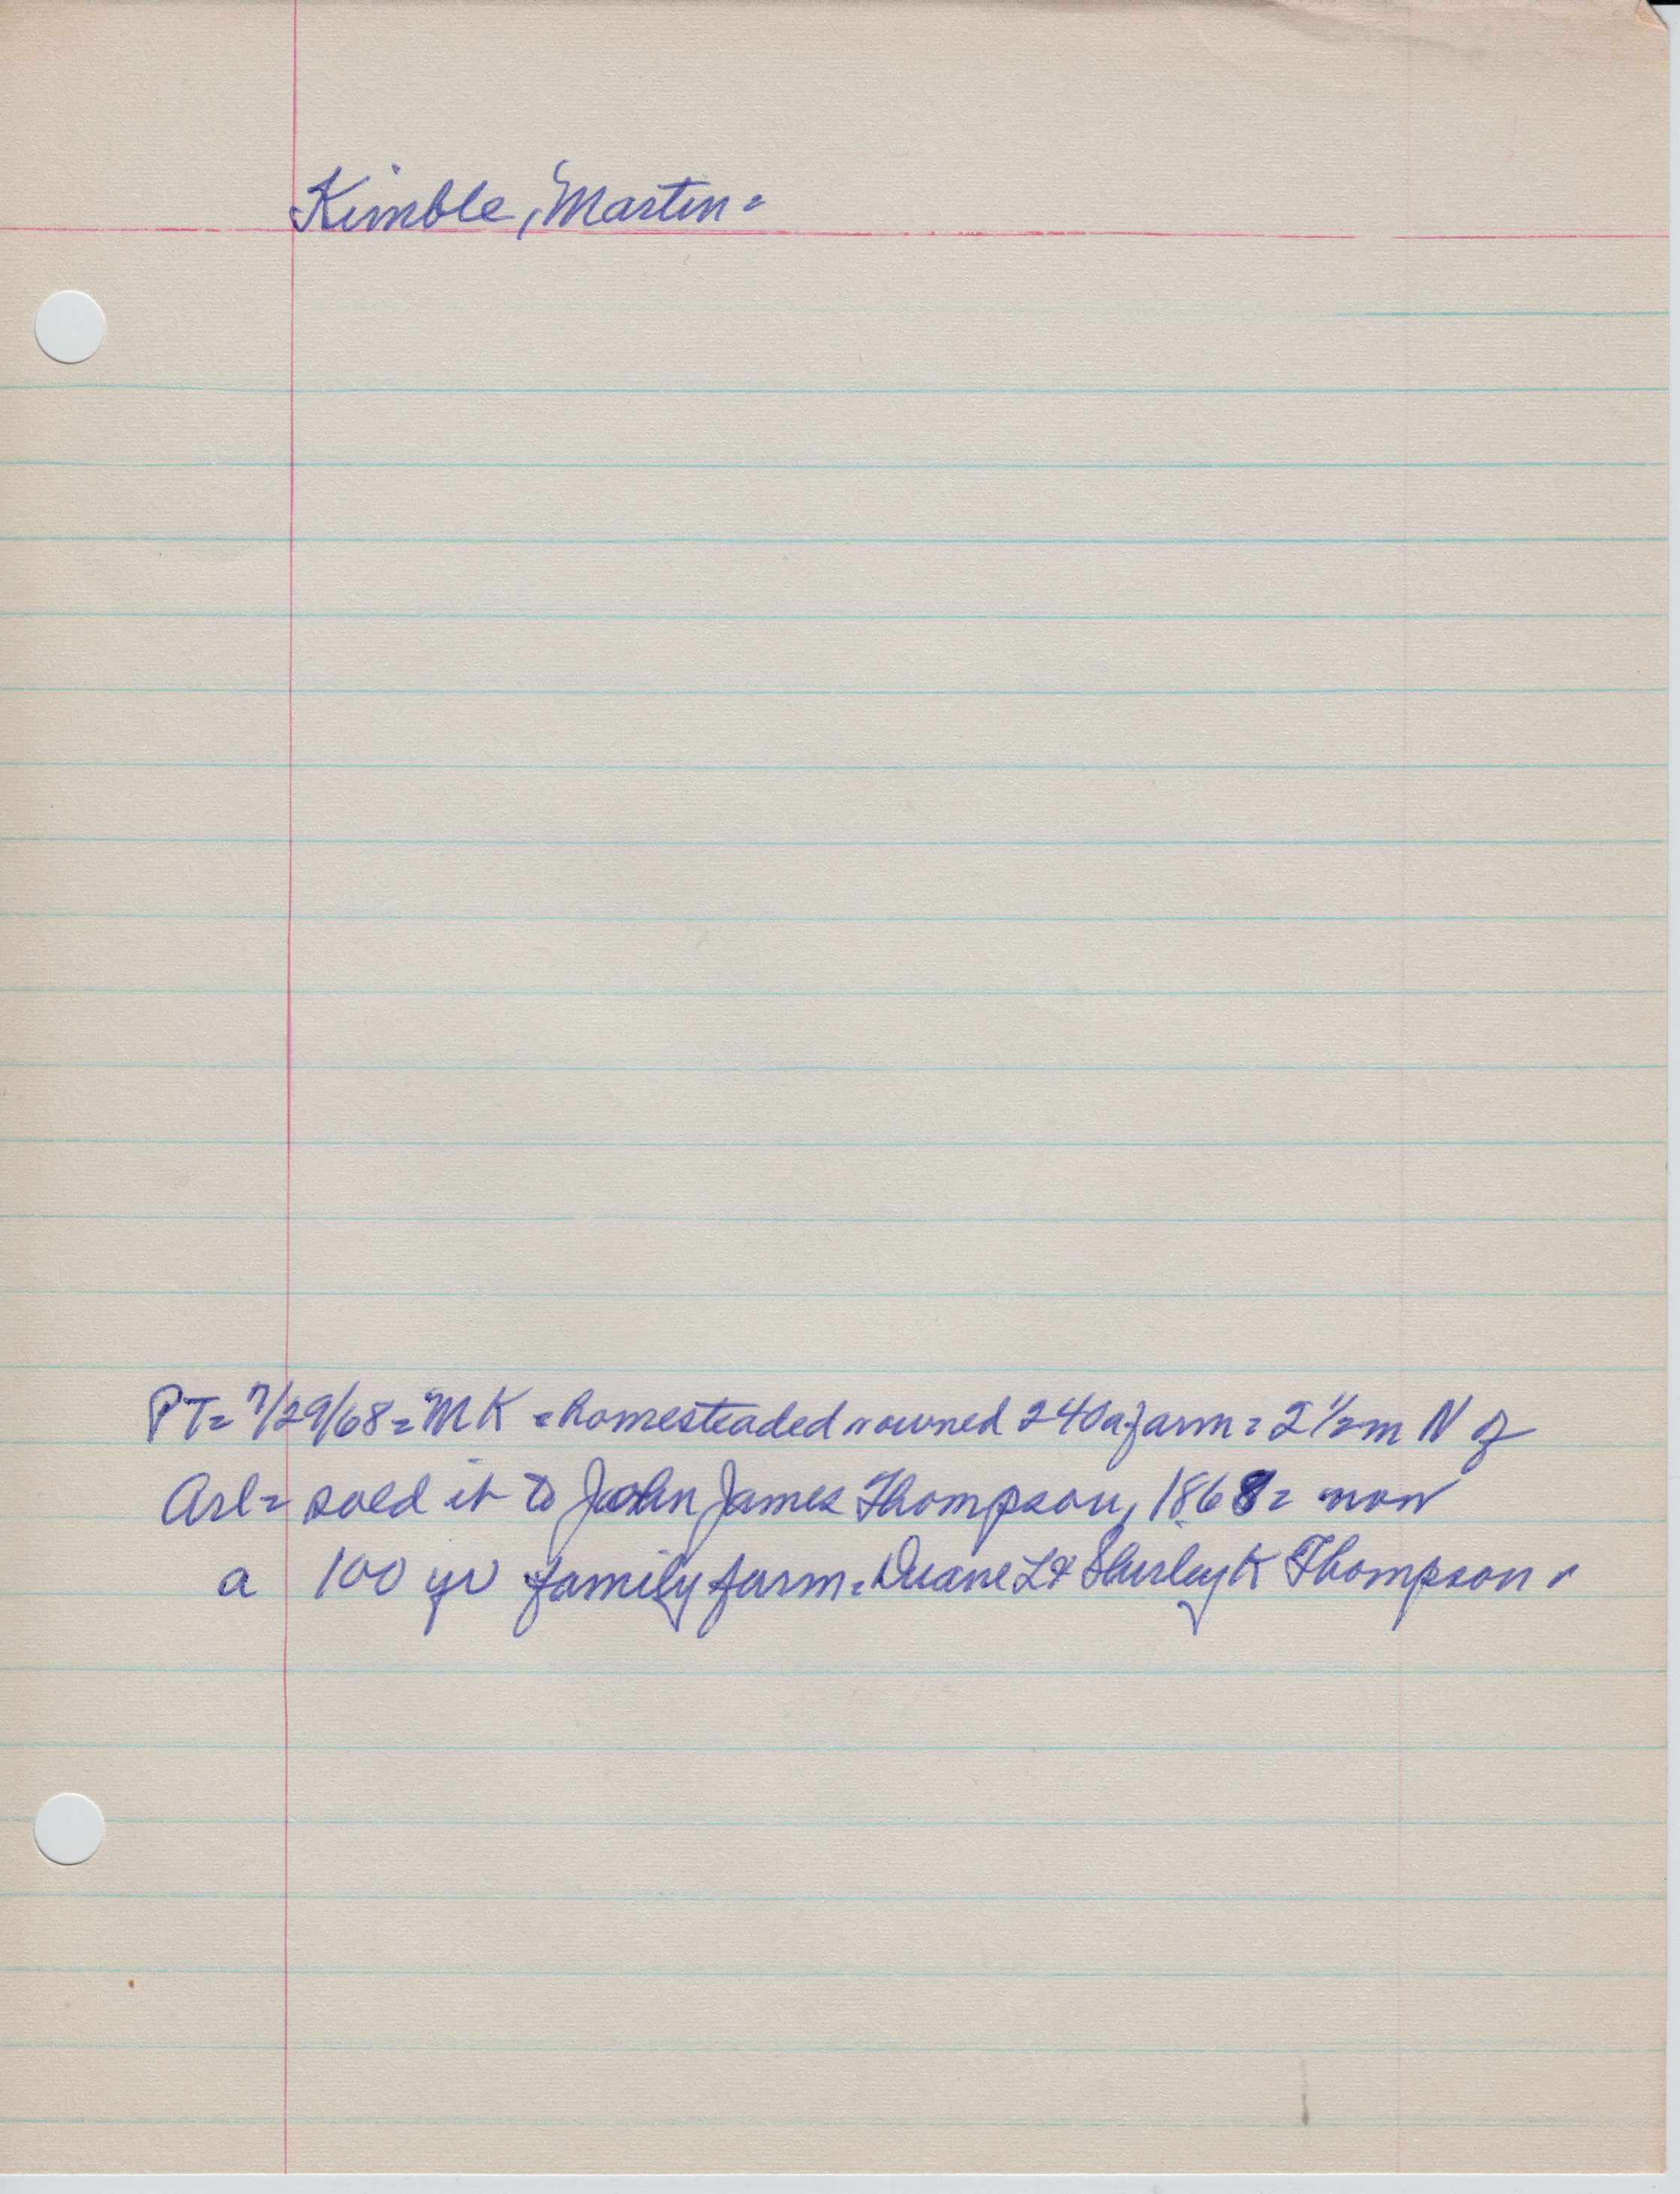 Kimble, Martin =
PT = 7/29/68 = MK = homesteaded n owned 240a farm = 2 1/2 m N of
Arl = sold it to John James Thompson, 1868 = now
a 100 yr family farm = Duane L & Shirley K Thompson =